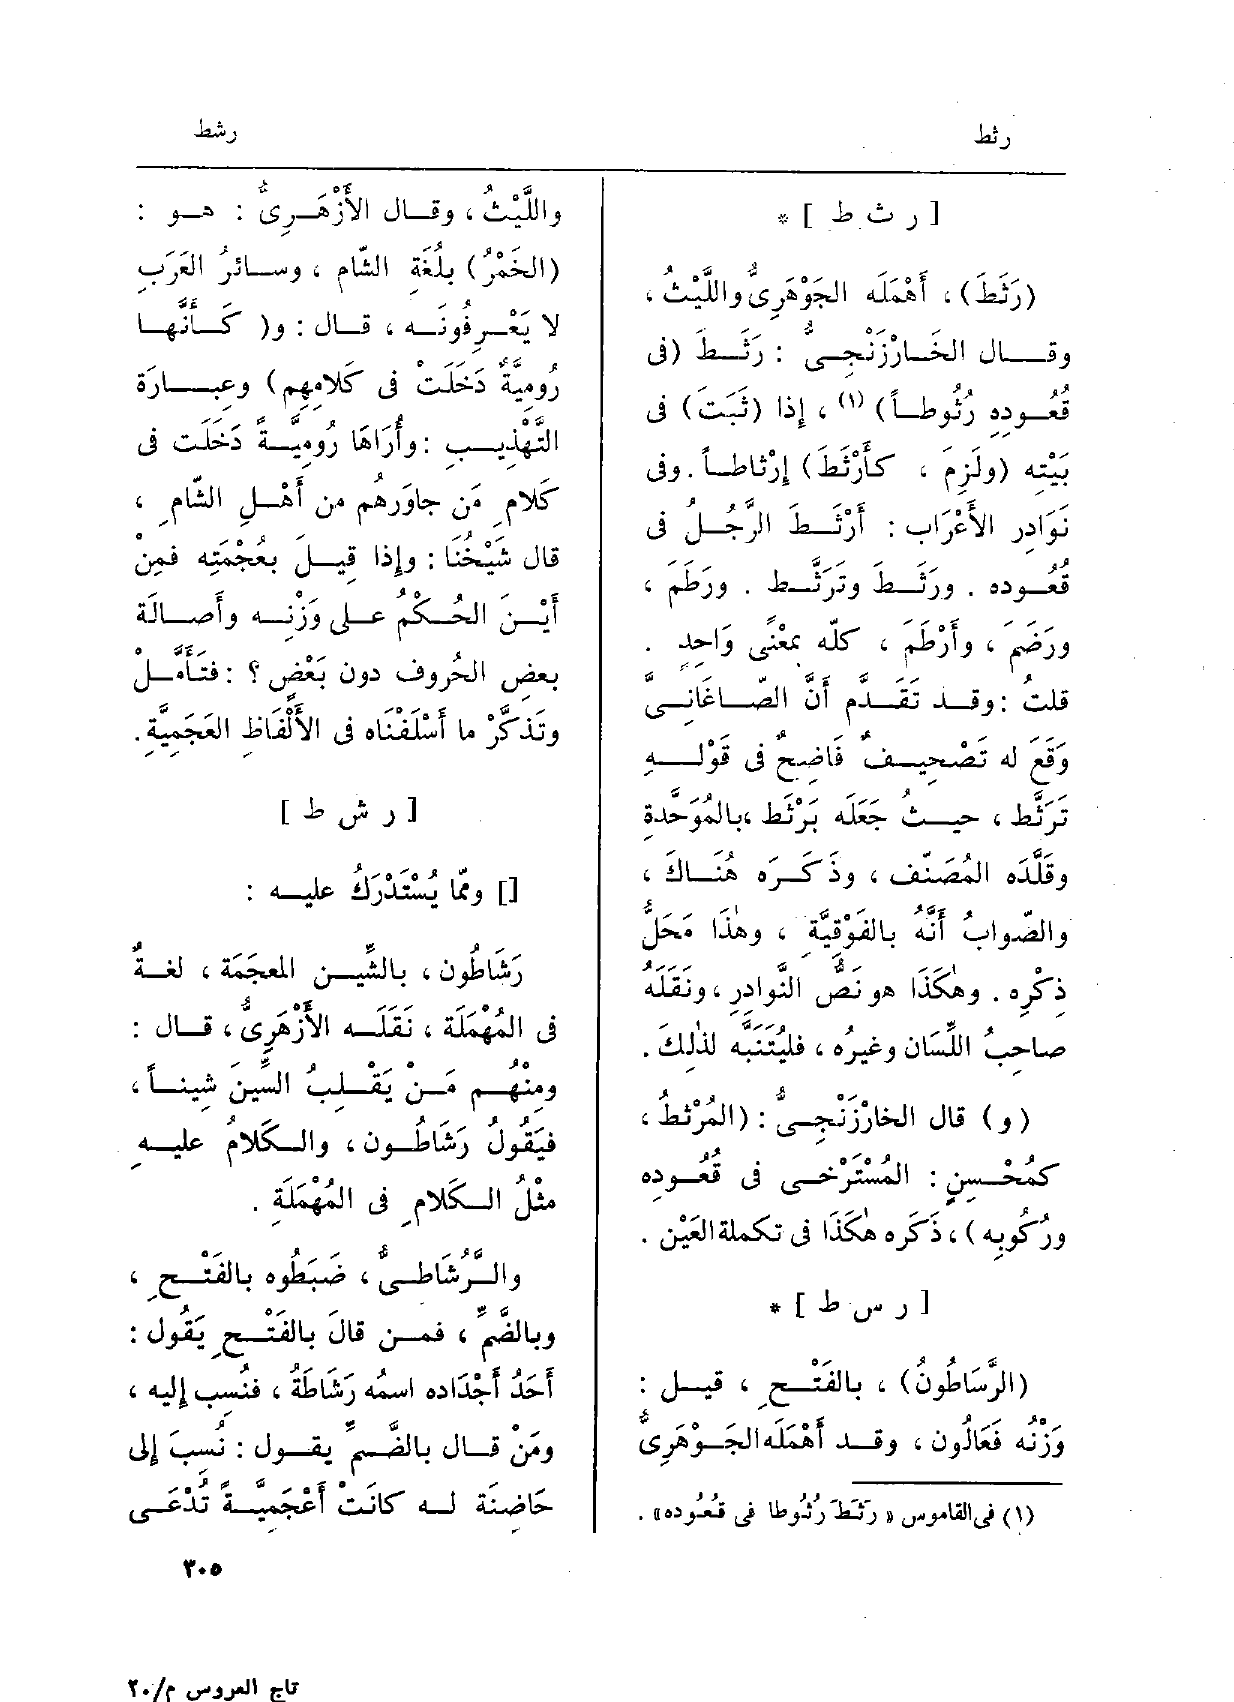 رثط
رشط
[ ر ث ط ] *
(رَثَطَ)، أَهْمَلَه الجَوْهَرِىُّ واللَّيْثُ،
وقـال الخَـارْزَنْجِـىُّ : رَثَـطَ (فى
قُعُـودِهِ رُثُوطـاً) (١) ، إِذا (ثَبَتَ) فى
بَيْتِه (ولَزِمَ ، كأَرْثَطَ) إِرْثاطـاً . وفى
نَوَادِرِ الأَعْرَاب : أَرْثَـطَ الرَّجُـلُ فى
قُعُـوده . ورَثَـطَ وتَرَثَّـط . ورَطَمَ ،
ورَضَمَ ، وأَرْطَمَ ، كلّه بمَعْنًى وَاحِدٍ .
قلتُ : وقـد تَقَـدَّم أَنَّ الصّـاغَانِـىَّ
وَقَعَ له تَصْحِيـفٌ فَاضِحٌ فى قَوْلِـهِ
تَرَثَّط ، حيـثُ جَعَلَه بَرْثَط ، بالمُوَحَّدة
وقَلَّدَه المُصَنِّف ، وذَكَـرَه هُنَـاكَ ،
والصّوابُ أَنَّهُ بالفَوْقِيَّة ، وهٰذا مَحَلُّ
ذِكْرِه . وهٰكَذَا هو نَصُّ النَّوادِرِ ، ونَقَلَهُ
صاحِبُ اللِّسَان وغيرُه ، فليُتَنَبَّه لذٰلِكَ .
(و) قال الخارْزَنْجِـىُّ : (المُرْثِطُ ،
كمُحْـسِنٍ : المُسْتَرْخـى فى قُعُـودِه
ورُكُوبِه) ، ذَكَره هٰكَذَا فى تكملة العَيْن .
[ ر س ط ] *
(الرَّسَاطُونُ) ، بالفَتْـحِ ، قيـل :
وَزْنُه فَعَالُون ، وقـد أَهْمَلَه الجَـوْهَرِىُّ
(١) فى القاموس «رَثَطَ رُثُوطا فى قُعُوده» .
واللَّيْثُ ، وقـال الأَزْهَـرِىُّ : هـو :
(الخَمْرُ) بلُغَةِ الشّام ، وسـائرُ العَرَبِ
لا يَعْـرِفُونَـه ، قـال : و( كـأَنَّهـا
رُومِيَّةٌ دَخَلَتْ فى كَلامِهِم) وعِبـارَة
التَّهْذِيـب : وأُرَاهَا رُومِيَّـةً دَخَلَت فى
كَلامِ مَن جاوَرهُم من أَهْـلِ الشّامِ ،
قال شَيْخُنَا : وإِذا قِيـلَ بعُجْمَتِه فمِنْ
أَيْـنَ الحُـكْمُ عـلى وَزْنِـه وأَصـالَة
بعضِ الحُروف دون بَعْضٍ ؟ : فتَأَمَّـلْ
وتَذَكَّرْ ما أَسْلَفْنَاه فى الأَلْفَاظ العَجَمِيَّةِ .
[ ر ش ط ]
[] وممّا يُسْتَدْرَكُ عليـه :
رَشَاطُون ، بالشِّيـن المعجَمَة ، لغـةٌ
فى المُهْمَلَة ، نَقَلَـه الأَزْهَرِىُّ ، قـال :
ومِنْهـم مَـنْ يَقْـلِبُ السِّينَ شيِنـاً ،
فيَقُولُ رَشَاطُـون ، والـكَلامُ عليـهِ
مثْلُ الـكَلامِ فى المُهْمَلَةِ .
والـرُّشَاطِـىُّ ، ضَبَطُوه بالفَتْـحِ ،
وبالضَّمِّ ، فمـن قالَ بالفَتْـحِ يَقُول :
أَحَدُ أَجْدَاده اسمُه رَشَاطَةُ ، فنُسِب إِليه ،
ومَنْ قـال بالضَّـمِّ يقـول : نُسِبَ إِلى
حَاضِنَة لـه كانَتْ أَعْجَمِيَّـةً تُدْعَـى
٣٠٥
تاج العروس م/٢٠